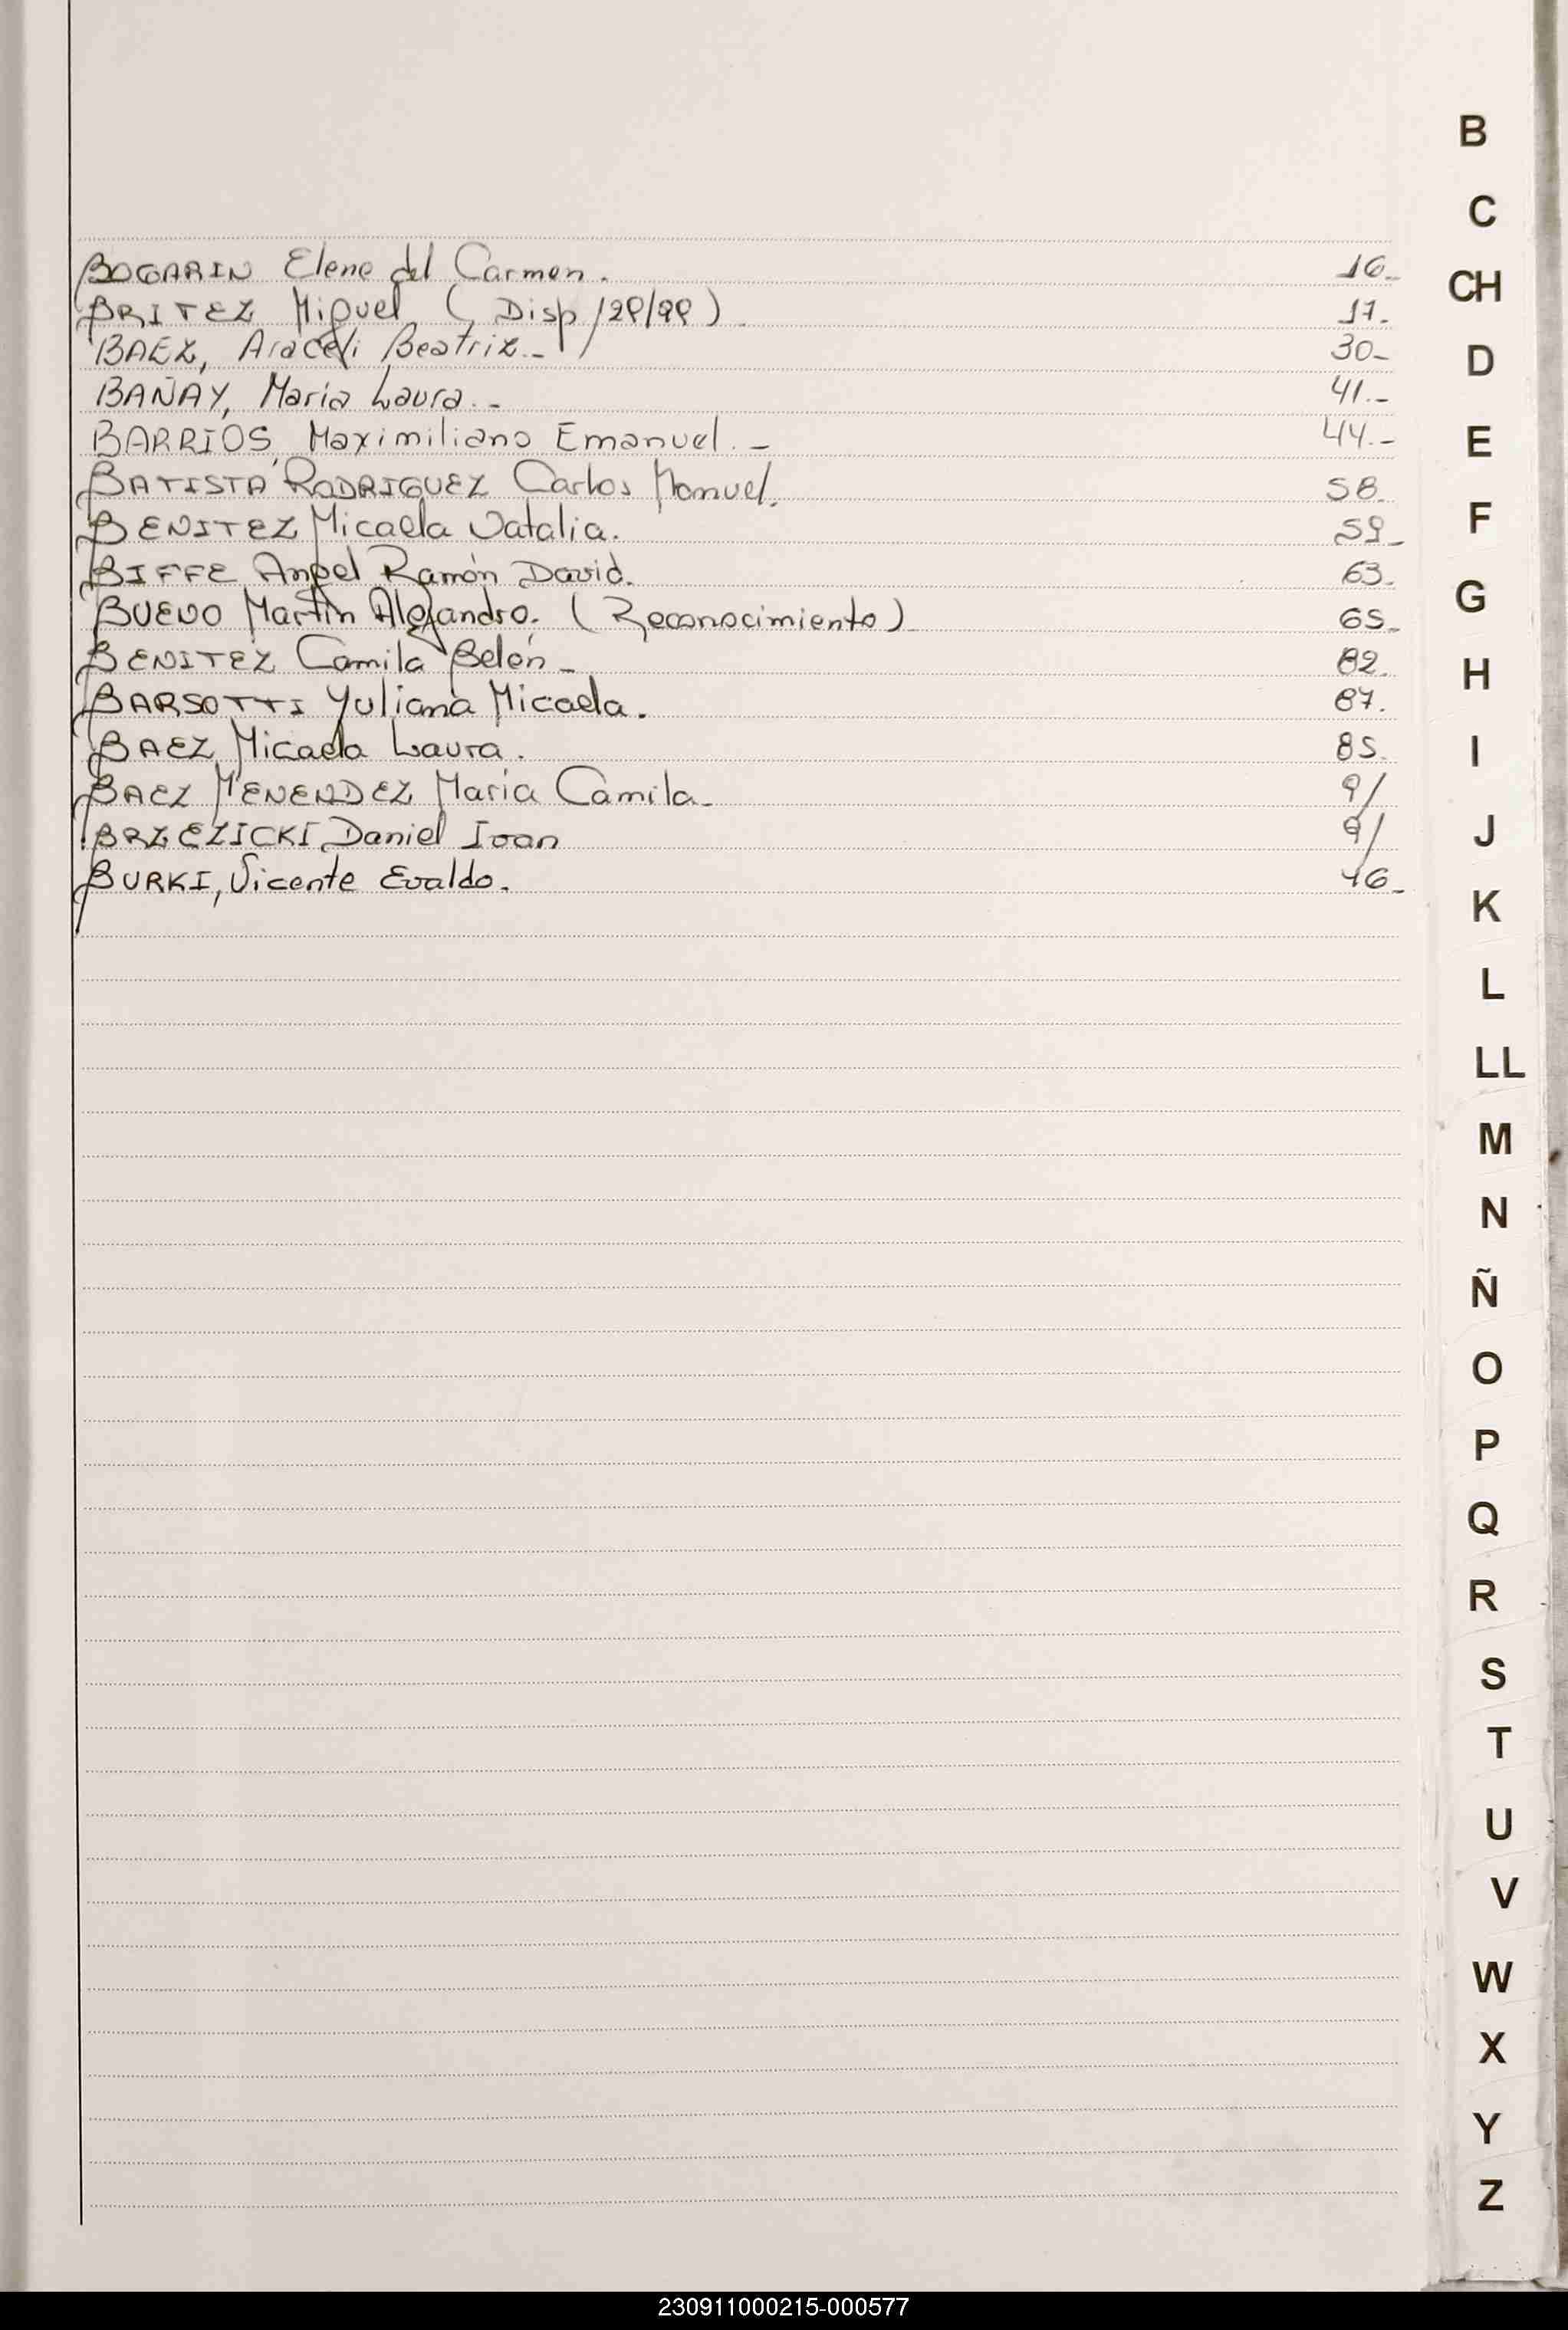 BOGARIN Elena del Carmen. 16_
BRITEZ Miguel (Disp/29/99). 17.
BAEZ, Araceli Beatriz._ 30_
BAÑAY, María Laura._ 41._
BARRIOS, Maximiliano Emanuel._ 44._
BATISTA RODRIGUEZ Carlos Manuel. 58.
BENITEZ Micaela Natalia. 59_
BIFFE Angel Ramón David. 63.
BUENO Martín Alejandro. (Reconocimiento) 65_
BENITEZ Camila Belén_ 82.
BARSOTTI Yuliana Micaela. 87.
BAEZ Micaela Laura. 85.
BAEZ MENENDEZ María Camila_ 91
BRZEZICKI Daniel Ivan 91
BURKI, Vicente Evaldo. 46_
B
C
CH
D
E
F
G
H
I
J
K
L
LL
M
N
Ñ
O
P
Q
R
S
T
U
V
W
X
Y
Z
230911000215-000577